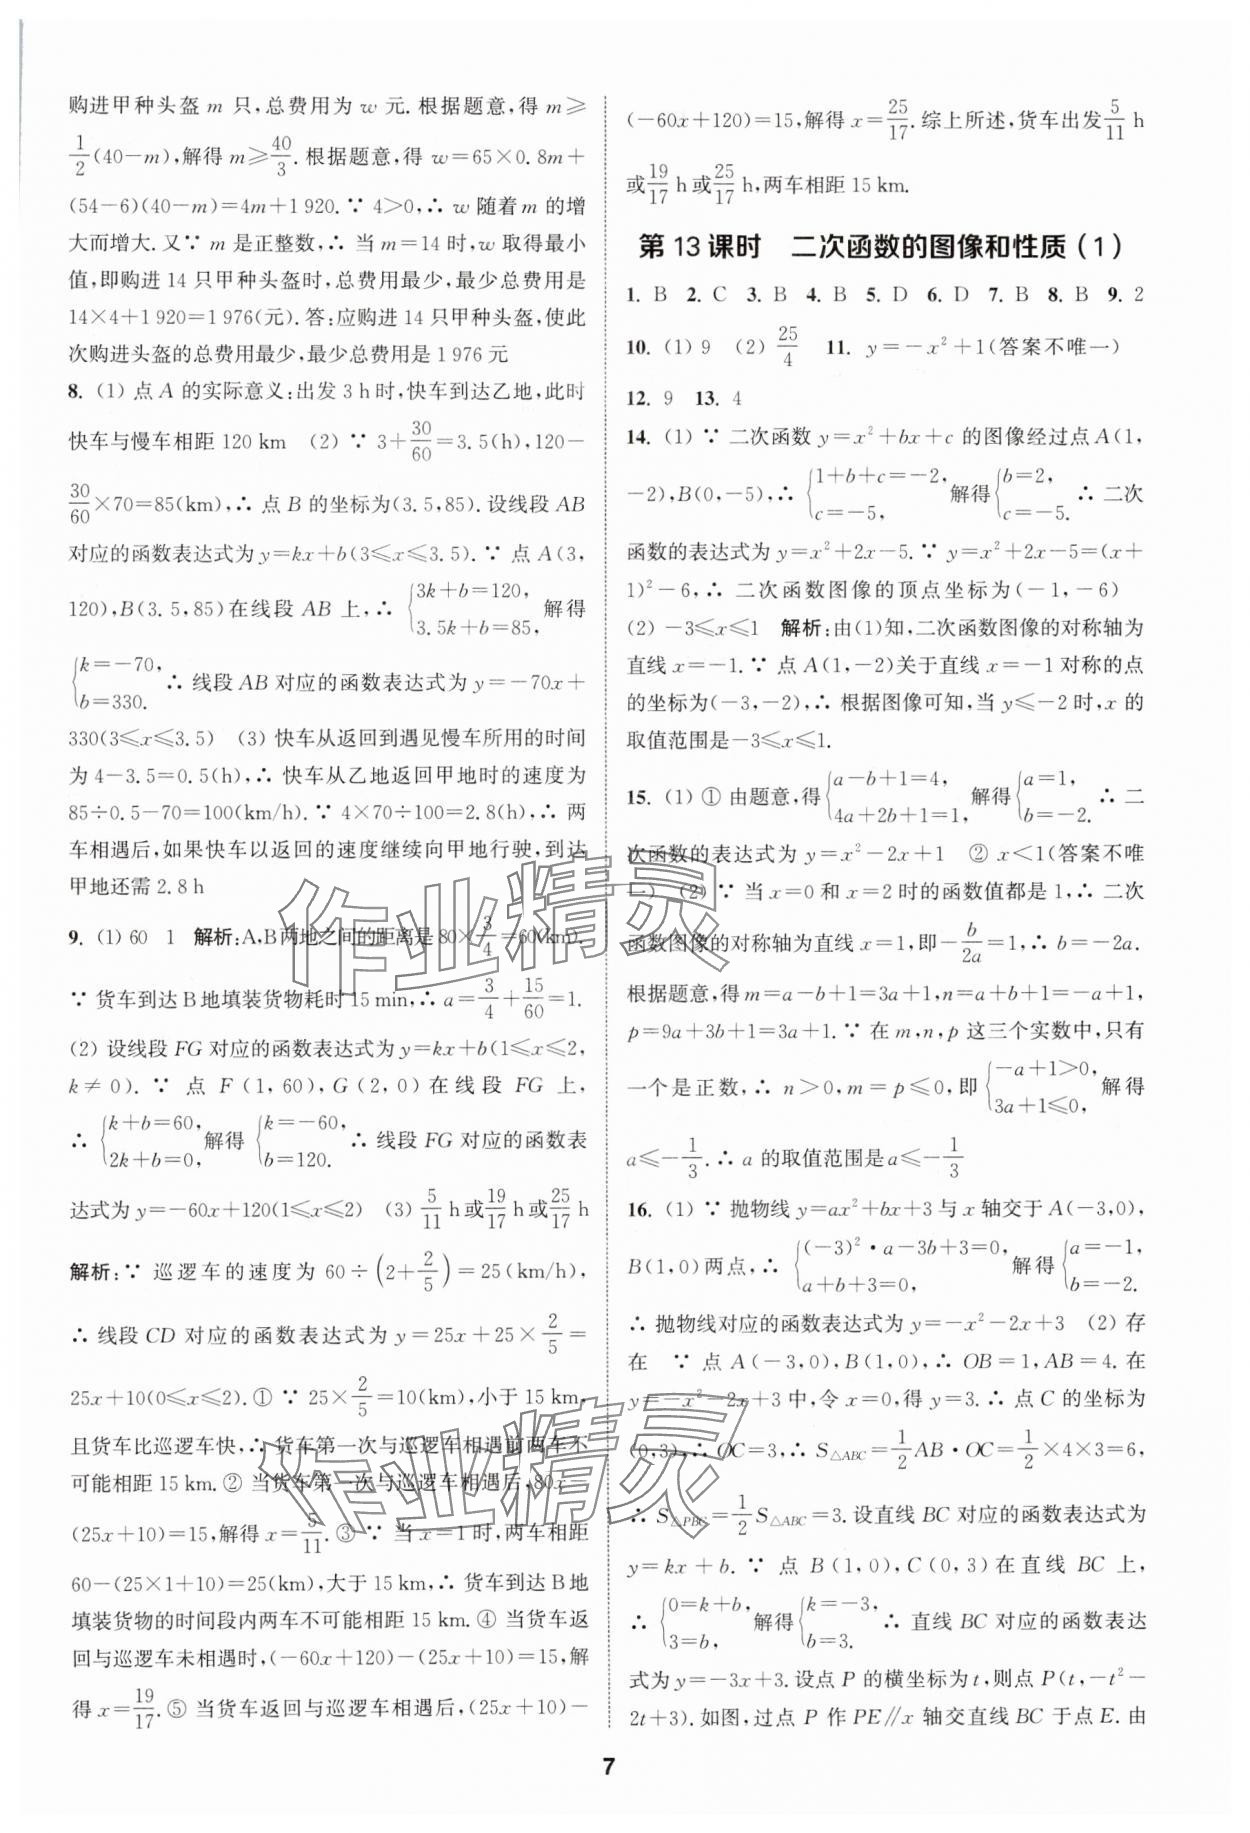 购进甲种头盔 m 只,总费用为 w 元. 根据题意,得 m≥
1/2(40-m),解得 m≥40/3. 根据题意,得 w=65×0.8m+
(54-6)(40-m)=4m+1 920. ∵ 4>0,∴ w 随着 m 的增
大而增大. 又∵ m 是正整数,∴ 当 m=14 时,w 取得最小
值,即购进 14 只甲种头盔时,总费用最少,最少总费用是
14×4+1 920=1 976(元). 答:应购进 14 只甲种头盔,使此
次购进头盔的总费用最少,最少总费用为 1 976 元
8. (1) 点 A 的实际意义:出发 3 h 时,快车到达乙地,此时
快车与慢车相距 120 km (2) ∵ 3+30/60=3.5(h),120-
30/60×70=85(km),∴ 点 B 的坐标为(3.5,85). 设线段 AB
对应的函数表达式为 y=kx+b(3≤x≤3.5). ∵ 点 A(3,
120),B(3.5,85)在线段 AB 上,∴ {3k+b=120, 3.5k+b=85, 解得
{k=-70, b=330. ∴ 线段 AB 对应的函数表达式为 y=-70x+
330(3≤x≤3.5) (3) 快车从返回到遇见慢车所用的时间
为 4-3.5=0.5(h),∴ 快车从乙地返回甲地时的速度为
85÷0.5-70=100(km/h). ∵ 4×70÷100=2.8(h),∴ 两
车相遇后,如果快车以返回的速度继续向甲地行驶,到达
甲地还需 2.8 h
9. (1) 60 1 解析:A,B 两地之间的距离是 80×3/4=60(km).
∵ 货车到达 B 地填装货物耗时 15 min,∴ a=3/4+15/60=1.
(2) 设线段 FG 对应的函数表达式为 y=kx+b(1≤x≤2,
k≠0). ∵ 点 F(1,60),G(2,0)在线段 FG 上,
∴ {k+b=60, 2k+b=0, 解得 {k=-60, b=120. ∴ 线段 FG 对应的函数表
达式为 y=-60x+120(1≤x≤2) (3) 5/11 h 或 19/17 h 或 25/17 h
解析:∵ 巡逻车的速度为 60÷(2+2/5)=25(km/h),
∴ 线段 CD 对应的函数表达式为 y=25x+25×2/5=
25x+10(0≤x≤2). ① ∵ 25×2/5=10(km),小于 15 km,
且货车比巡逻车快,∴ 货车第一次与巡逻车相遇前两车不
可能相距 15 km. ② 当货车第一次与巡逻车相遇后,80x-
(25x+10)=15,解得 x=5/11. ③ ∵ 当 x=1 时,两车相距
60-(25×1+10)=25(km),大于 15 km,∴ 货车到达 B 地
填装货物的时间段内两车不可能相距 15 km. ④ 当货车返
回与巡逻车未相遇时,(-60x+120)-(25x+10)=15,解
得 x=19/17. ⑤ 当货车返回与巡逻车相遇后,(25x+10)-
(-60x+120)=15,解得 x=25/17. 综上所述,货车出发 5/11 h
或 19/17 h 或 25/17 h,两车相距 15 km.
第 13 课时 二次函数的图像和性质(1)
1. B 2. C 3. B 4. B 5. D 6. D 7. B 8. B 9. 2
10. (1) 9 (2) 25/4 11. y=-x²+1(答案不唯一)
12. 9 13. 4
14. (1) ∵ 二次函数 y=x²+bx+c 的图像经过点 A(1,
-2),B(0,-5),∴ {1+b+c=-2, c=-5, 解得 {b=2, c=-5. ∴ 二次
函数的表达式为 y=x²+2x-5. ∵ y=x²+2x-5=(x+
1)²-6,∴ 二次函数图像的顶点坐标为(-1,-6)
(2) -3≤x≤1 解析:由(1)知,二次函数图像的对称轴为
直线 x=-1. ∵ 点 A(1,-2)关于直线 x=-1 对称的点
的坐标为(-3,-2),∴ 根据图像可知,当 y≤-2 时,x 的
取值范围是-3≤x≤1.
15. (1) ① 由题意,得 {a-b+1=4, 4a+2b+1=1, 解得 {a=1, b=-2. ∴ 二
次函数的表达式为 y=x²-2x+1 ② x<1(答案不唯
一) (2) ∵ 当 x=0 和 x=2 时的函数值都是 1,∴ 二次
函数图像的对称轴为直线 x=1,即-b/2a=1,∴ b=-2a.
根据题意,得 m=a-b+1=3a+1,n=a+b+1=-a+1,
p=9a+3b+1=3a+1. ∵ 在 m,n,p 这三个实数中,只有
一个是正数,∴ n>0,m=p≤0,即 {-a+1>0, 3a+1≤0, 解得
a≤-1/3. ∴ a 的取值范围是 a≤-1/3
16. (1) ∵ 抛物线 y=ax²+bx+3 与 x 轴交于 A(-3,0),
B(1,0)两点,∴ {(-3)²·a-3b+3=0, a+b+3=0, 解得 {a=-1, b=-2.
∴ 抛物线对应的函数表达式为 y=-x²-2x+3 (2) 存
在 ∵ 点 A(-3,0),B(1,0),∴ OB=1,AB=4. 在
y=-x²-2x+3 中,令 x=0,得 y=3. ∴ 点 C 的坐标为
(0,3). ∴ OC=3,∴ S△ABC=1/2AB·OC=1/2×4×3=6,
∴ S△PBC=1/2S△ABC=3. 设直线 BC 对应的函数表达式为
y=kx+b. ∵ 点 B(1,0),C(0,3)在直线 BC 上,
∴ {0=k+b, 3=b, 解得 {k=-3, b=3. ∴ 直线 BC 对应的函数表达
式为 y=-3x+3. 设点 P 的横坐标为 t,则点 P(t,-t²-
2t+3). 如图,过点 P 作 PE∥x 轴交直线 BC 于点 E. 由
7
作业精灵
作业精灵